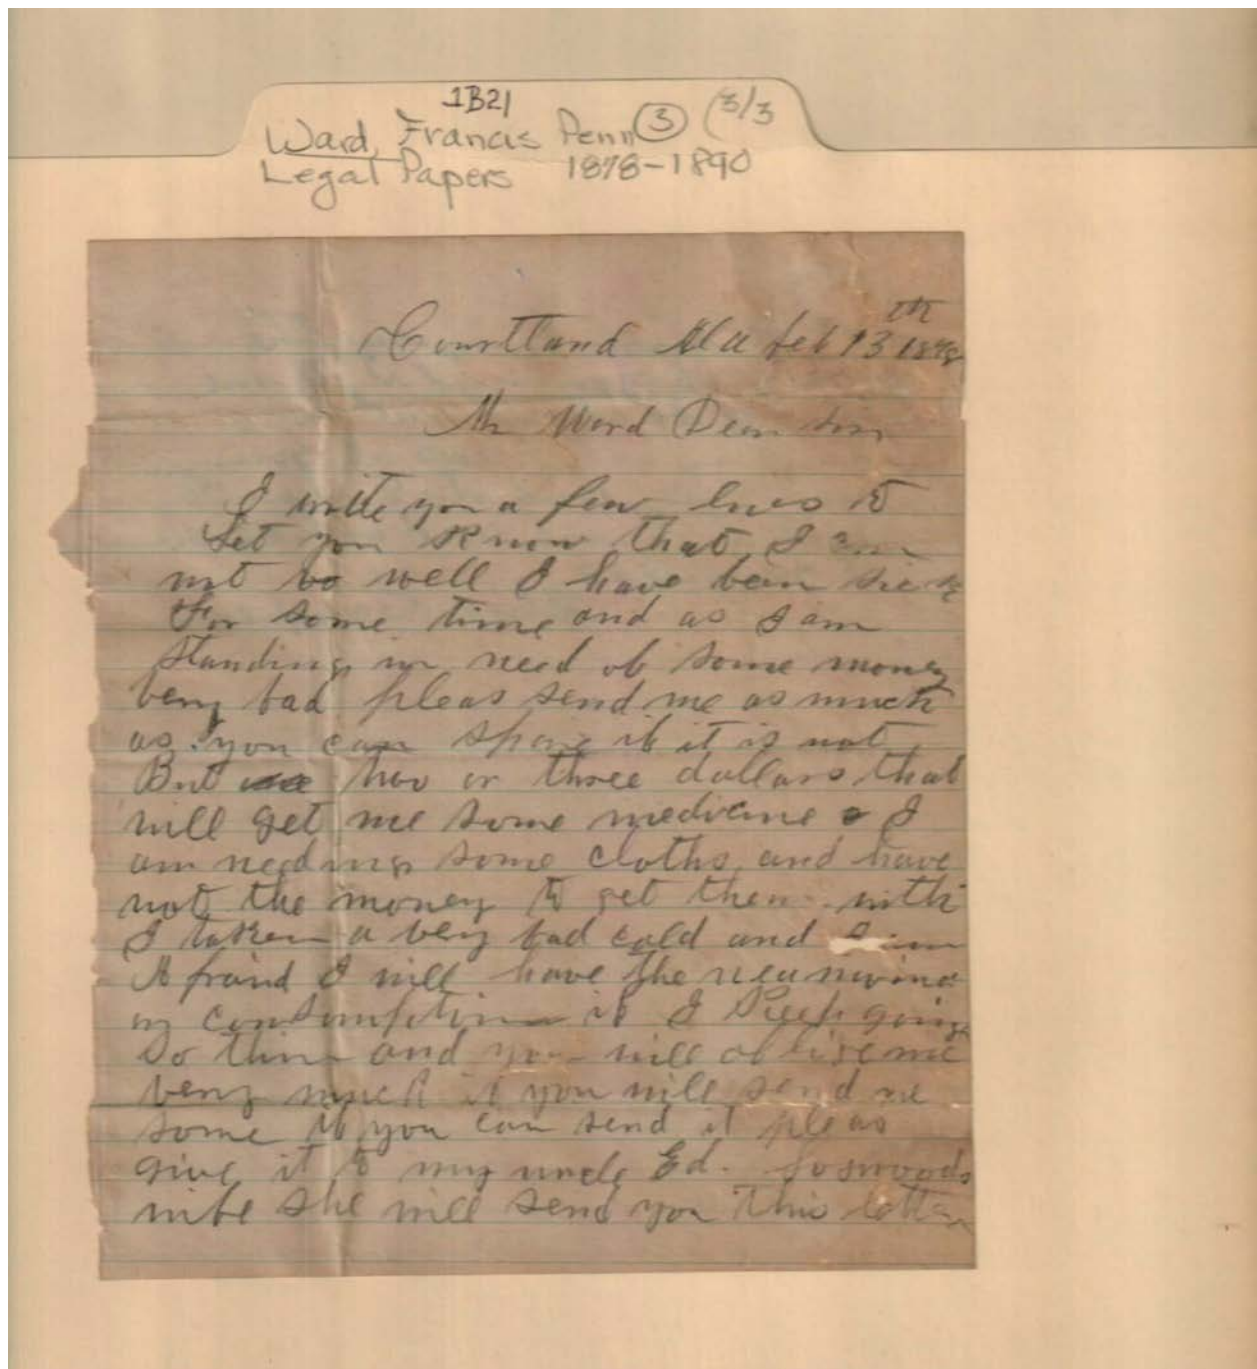 1B21
Ward, Francis Penn 3 (3/3
Legal Papers 1878-1890
Courtland Ala Feb 13th
Mr Ward Dear Sir
I write you a few lines to
Let you Know that I am
not so well I have been sick
For some time and as I am
Standing in need of some money
very bad pleas send me as much
as you can spare if it is not
But two or three dollars that
will get me some medicine I
am needing some cloths and have
not the money to get them with
I taken a very bad cold and I am
Afraid I will have the
or consumption if I Keep going
So thin and you will oblige me
very much if you will send me
some if you can send it pleas
give it to my uncle Ed.
wife she will send you this letter